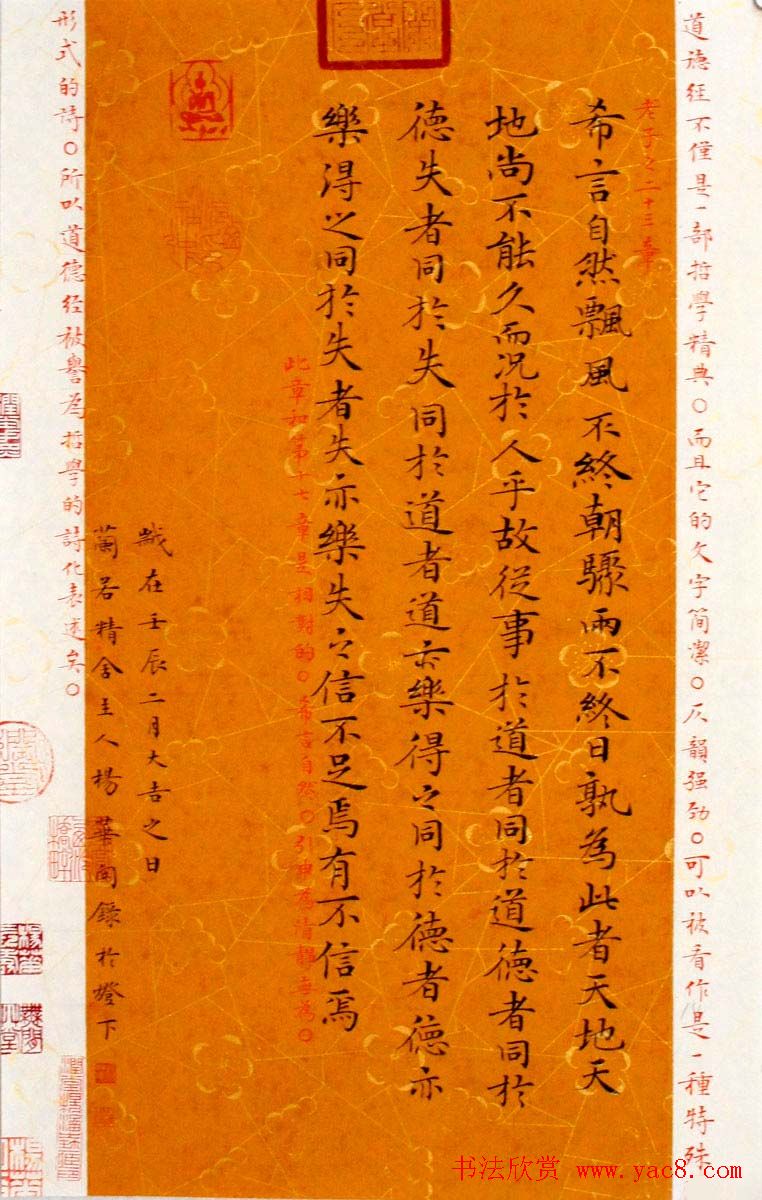 道德經不僅是一部哲學精典○而且它的文字簡潔○仄韻强勁○可以被看作是一種特殊
老子之二十三章
希言自然飄風不終朝驟雨不終日孰為此者天地天
地尚不能久而況於人乎故從事於道者同於道德者同於
德失者同於失同於道者道亦樂得之同於德者德亦
樂得之同於失者失亦樂失之信不足焉有不信焉
此章和第十七章是相對的○希言自然○引申為清靜無為○
歲在壬辰二月大吉之日
蘭若精舍主人楊華 錄於燈下
形式的詩○所以道德經被譽為哲學的詩化表述矣○
书法欣赏 www.yac8.com